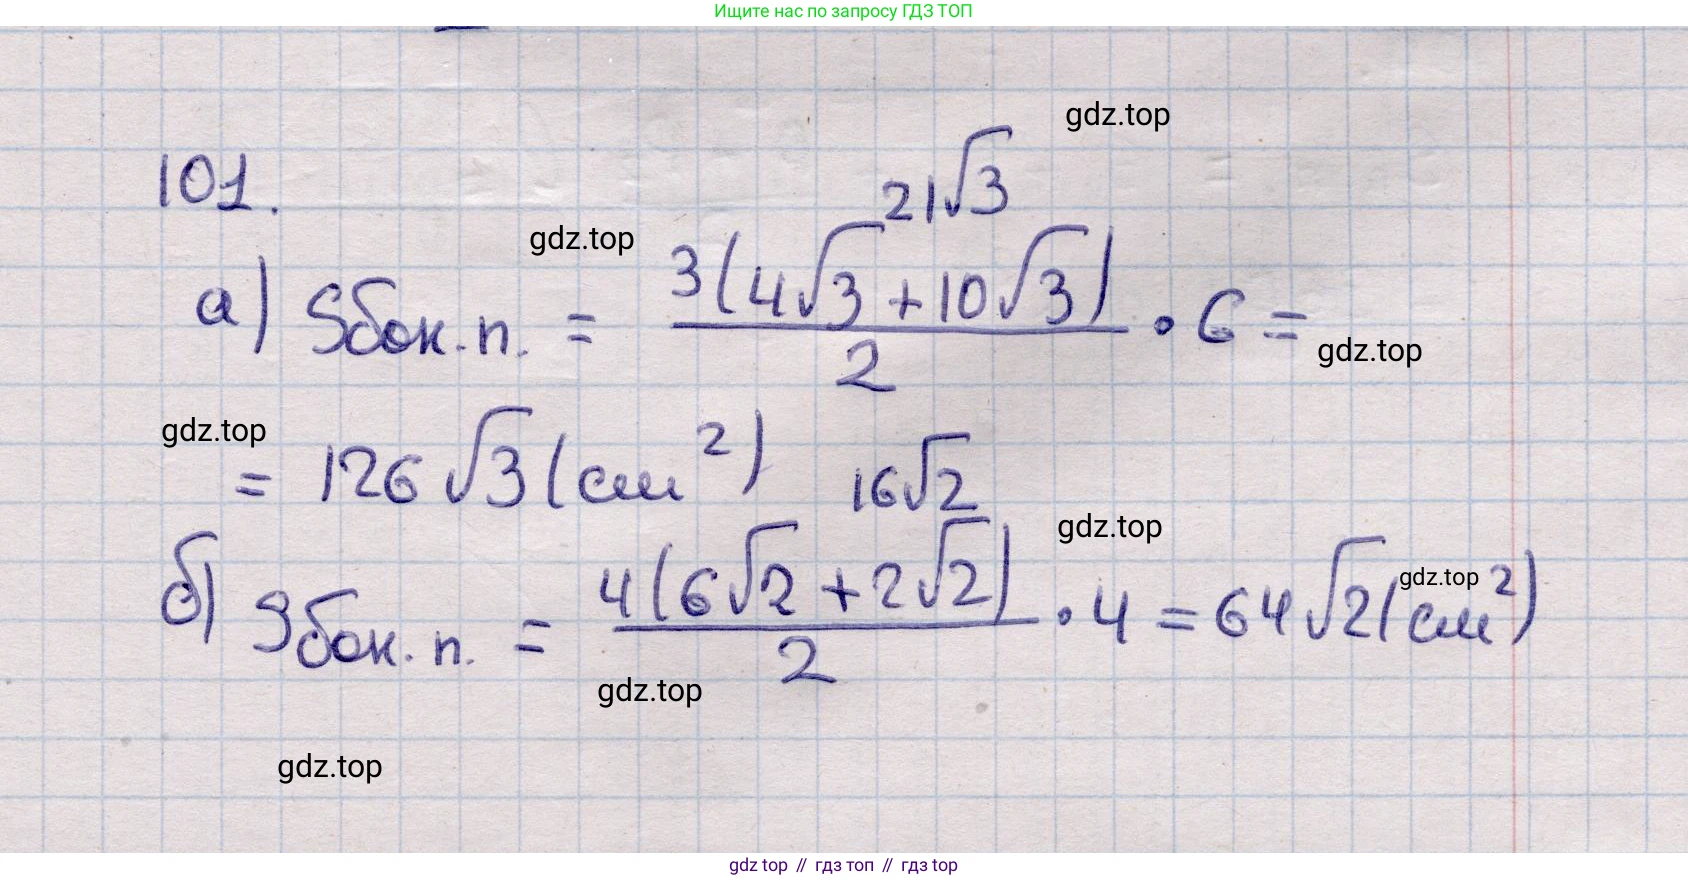 Ищите нас по запросу ГДЗ ТОП
gdz.top
101.
21√3
gdz.top
а) Sбок.п. = 3(4√3 + 10√3)/2 · 6 =
gdz.top
gdz.top
= 126√3 (см²)
16√2
gdz.top
б) Sбок.п. = 4(6√2 + 2√2)/2 · 4 = 64√2 (см²)
gdz.top
gdz.top
gdz.top
gdz top // гдз топ // гдз top